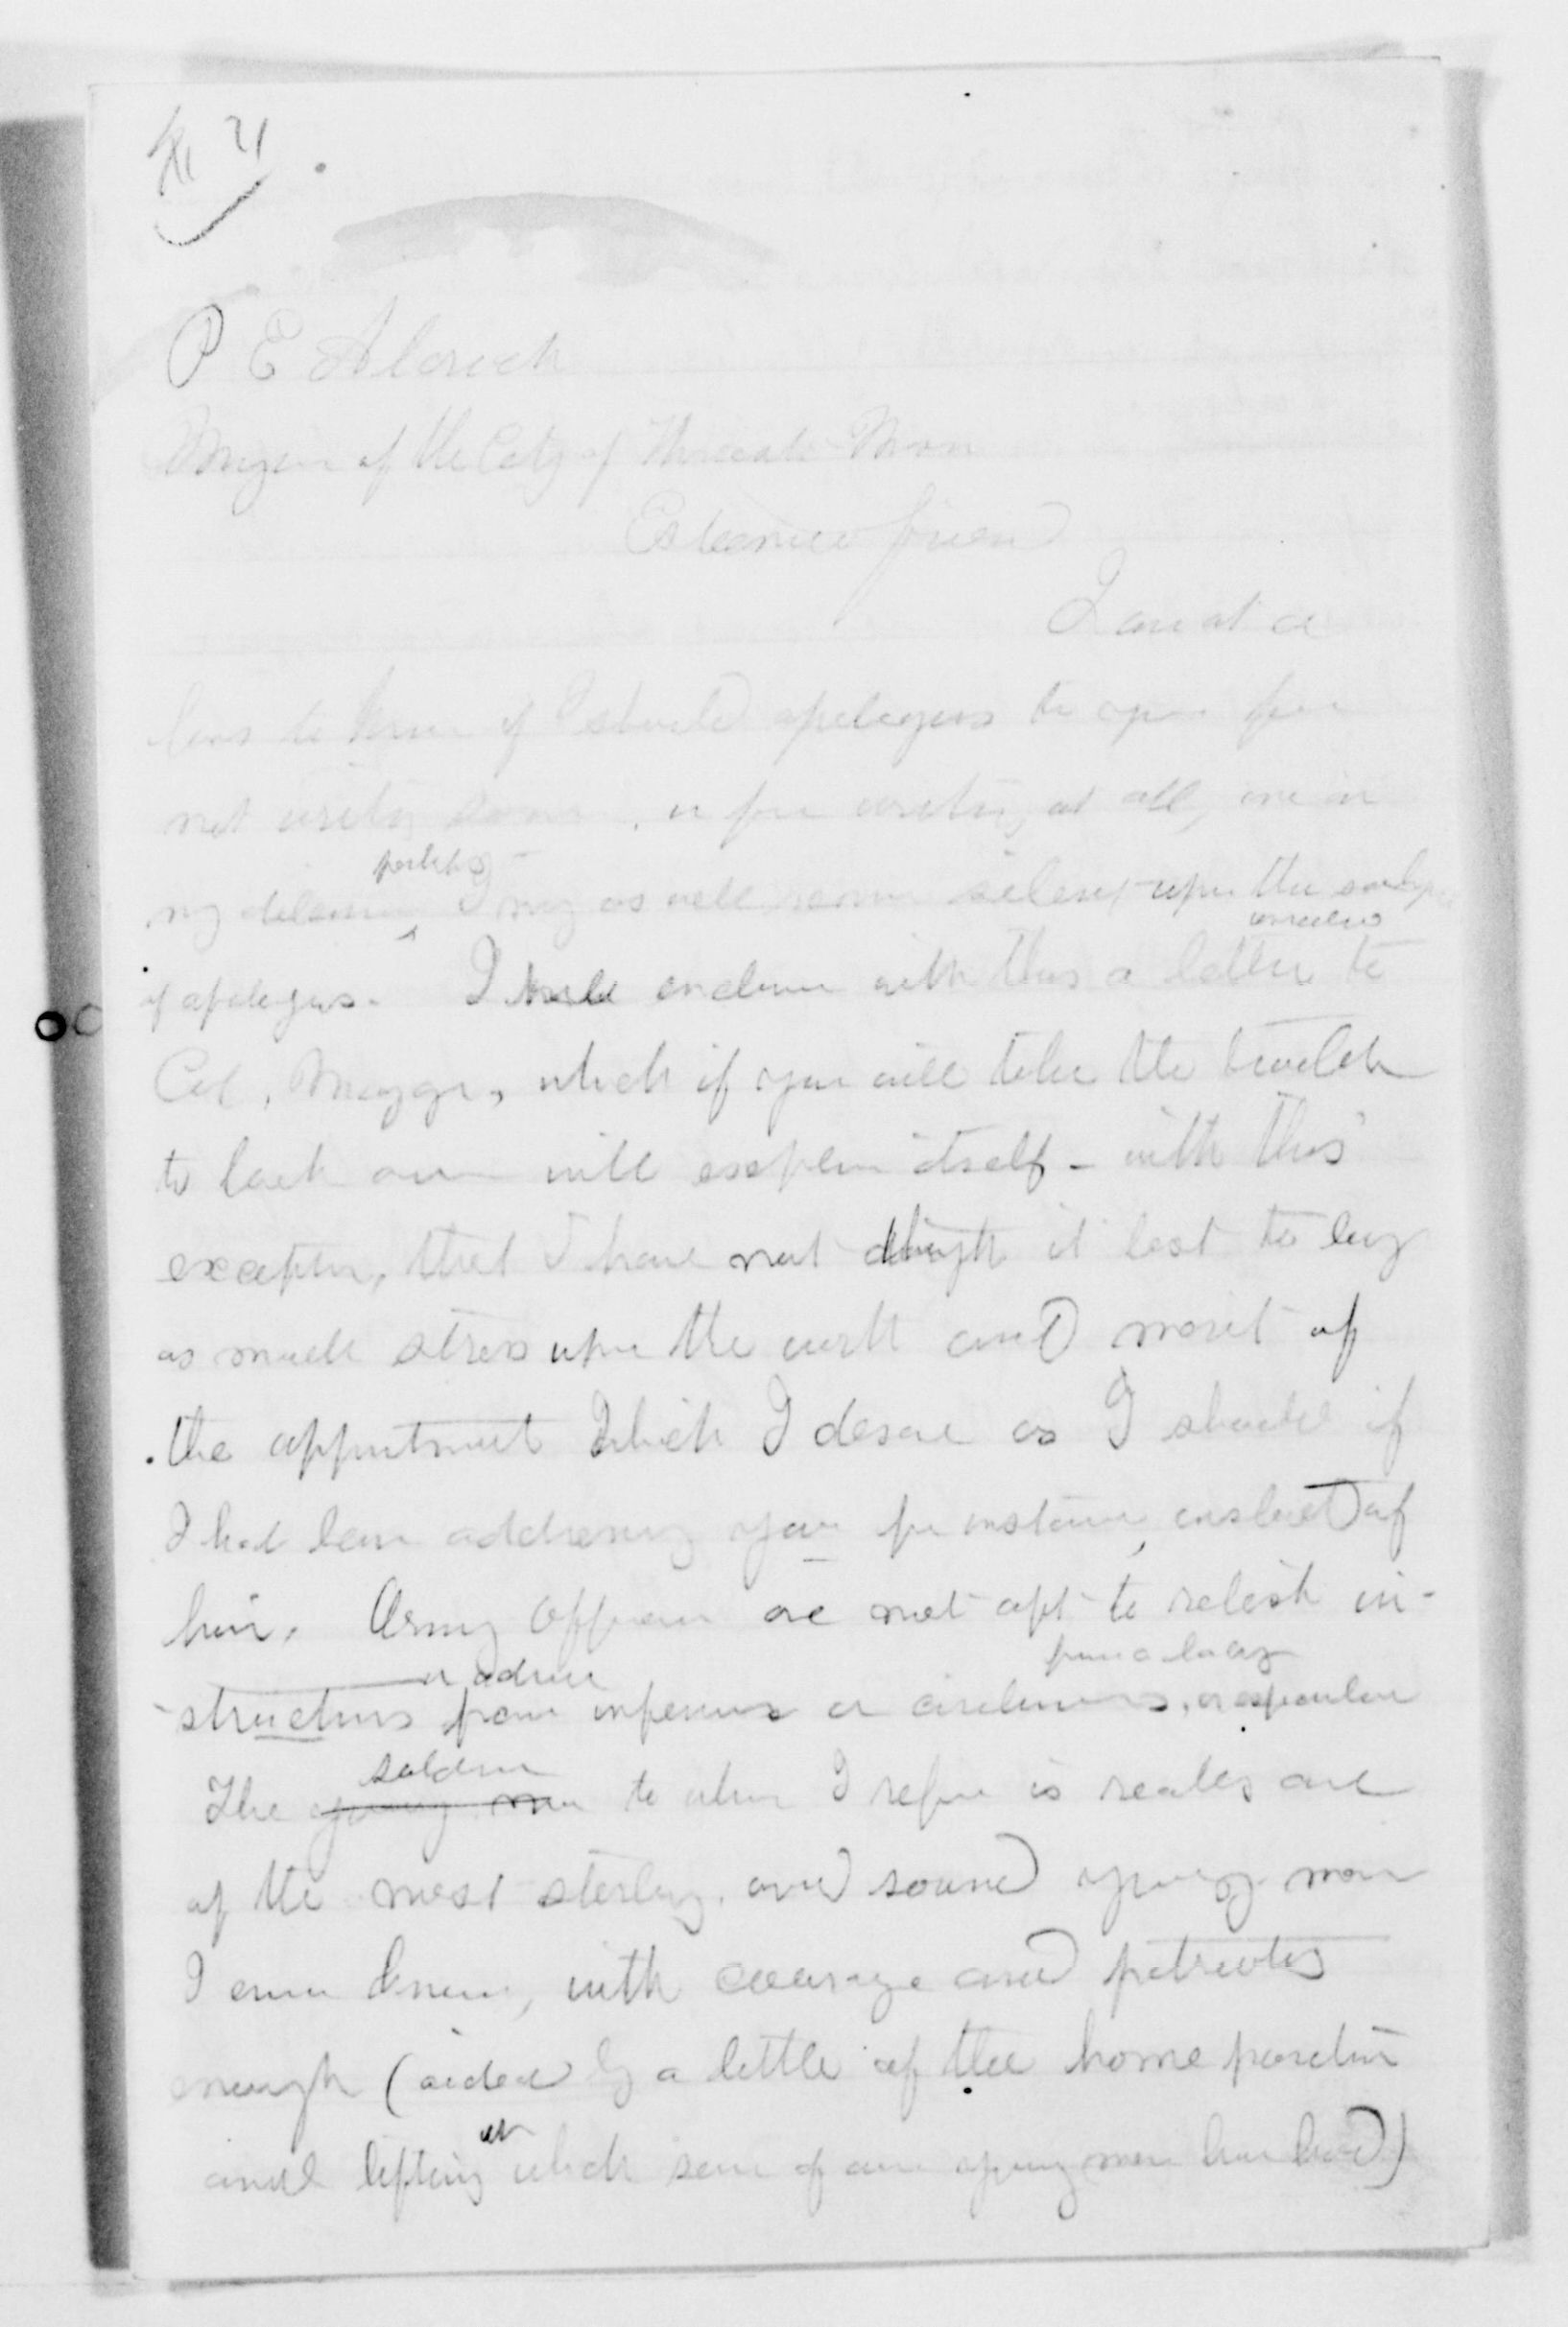 P E Aldrich
Mayor of the City of Worcester Mass
Esteemed friend
I am at a
loss to know if I should apologize to you for
not writing sooner, or for writing at all, and in
my dilemma perhaps I may as well remain silent upon the subject
of apologies. I enclose unsealed with this a letter to
Col, which if you will take the trouble
to look over will explain itself - with this
exception, that I have not thought it best to lay
as much stress upon the worth and merit of
the appointment which I desire as I should if
I had been addressing you for instance, instead of
him. Army officers are not apt to relish in-
structions or advice from inferiors or civilians, or especially from a lady
The young man soldier to whom I refer is really one
of the most sterling and sound young men
I ever knew, with courage and patriotism
enough (aided by a little of the home
and lifting up which some of our young men have had)